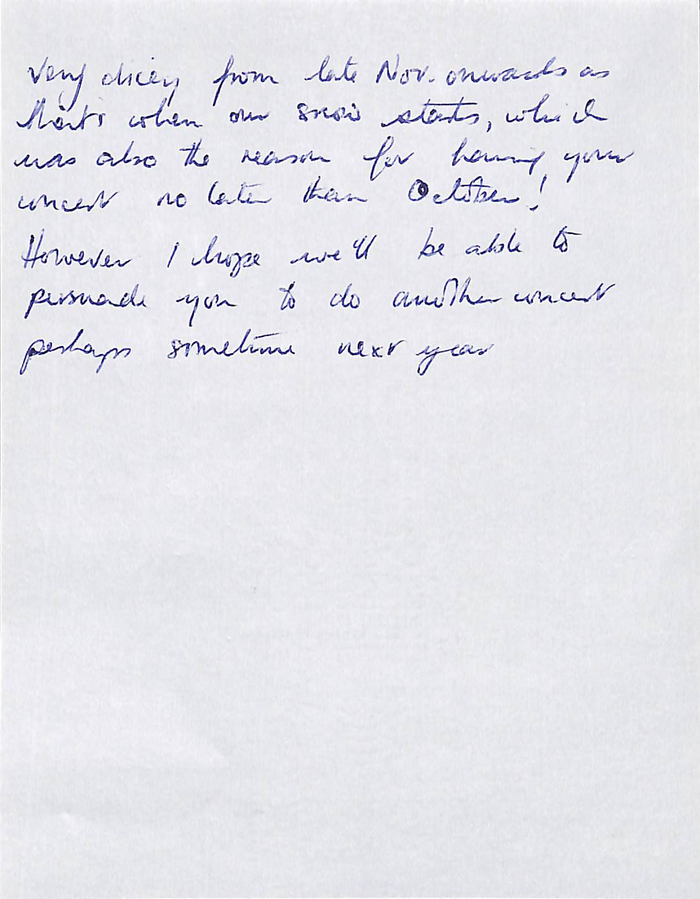 very dicey from late Nov. onwards as
that's when our snow starts, which
was also the reason for having your
concert no later than October!
However I hope we'll be able to
persuade you to do another concert
perhaps sometime next year